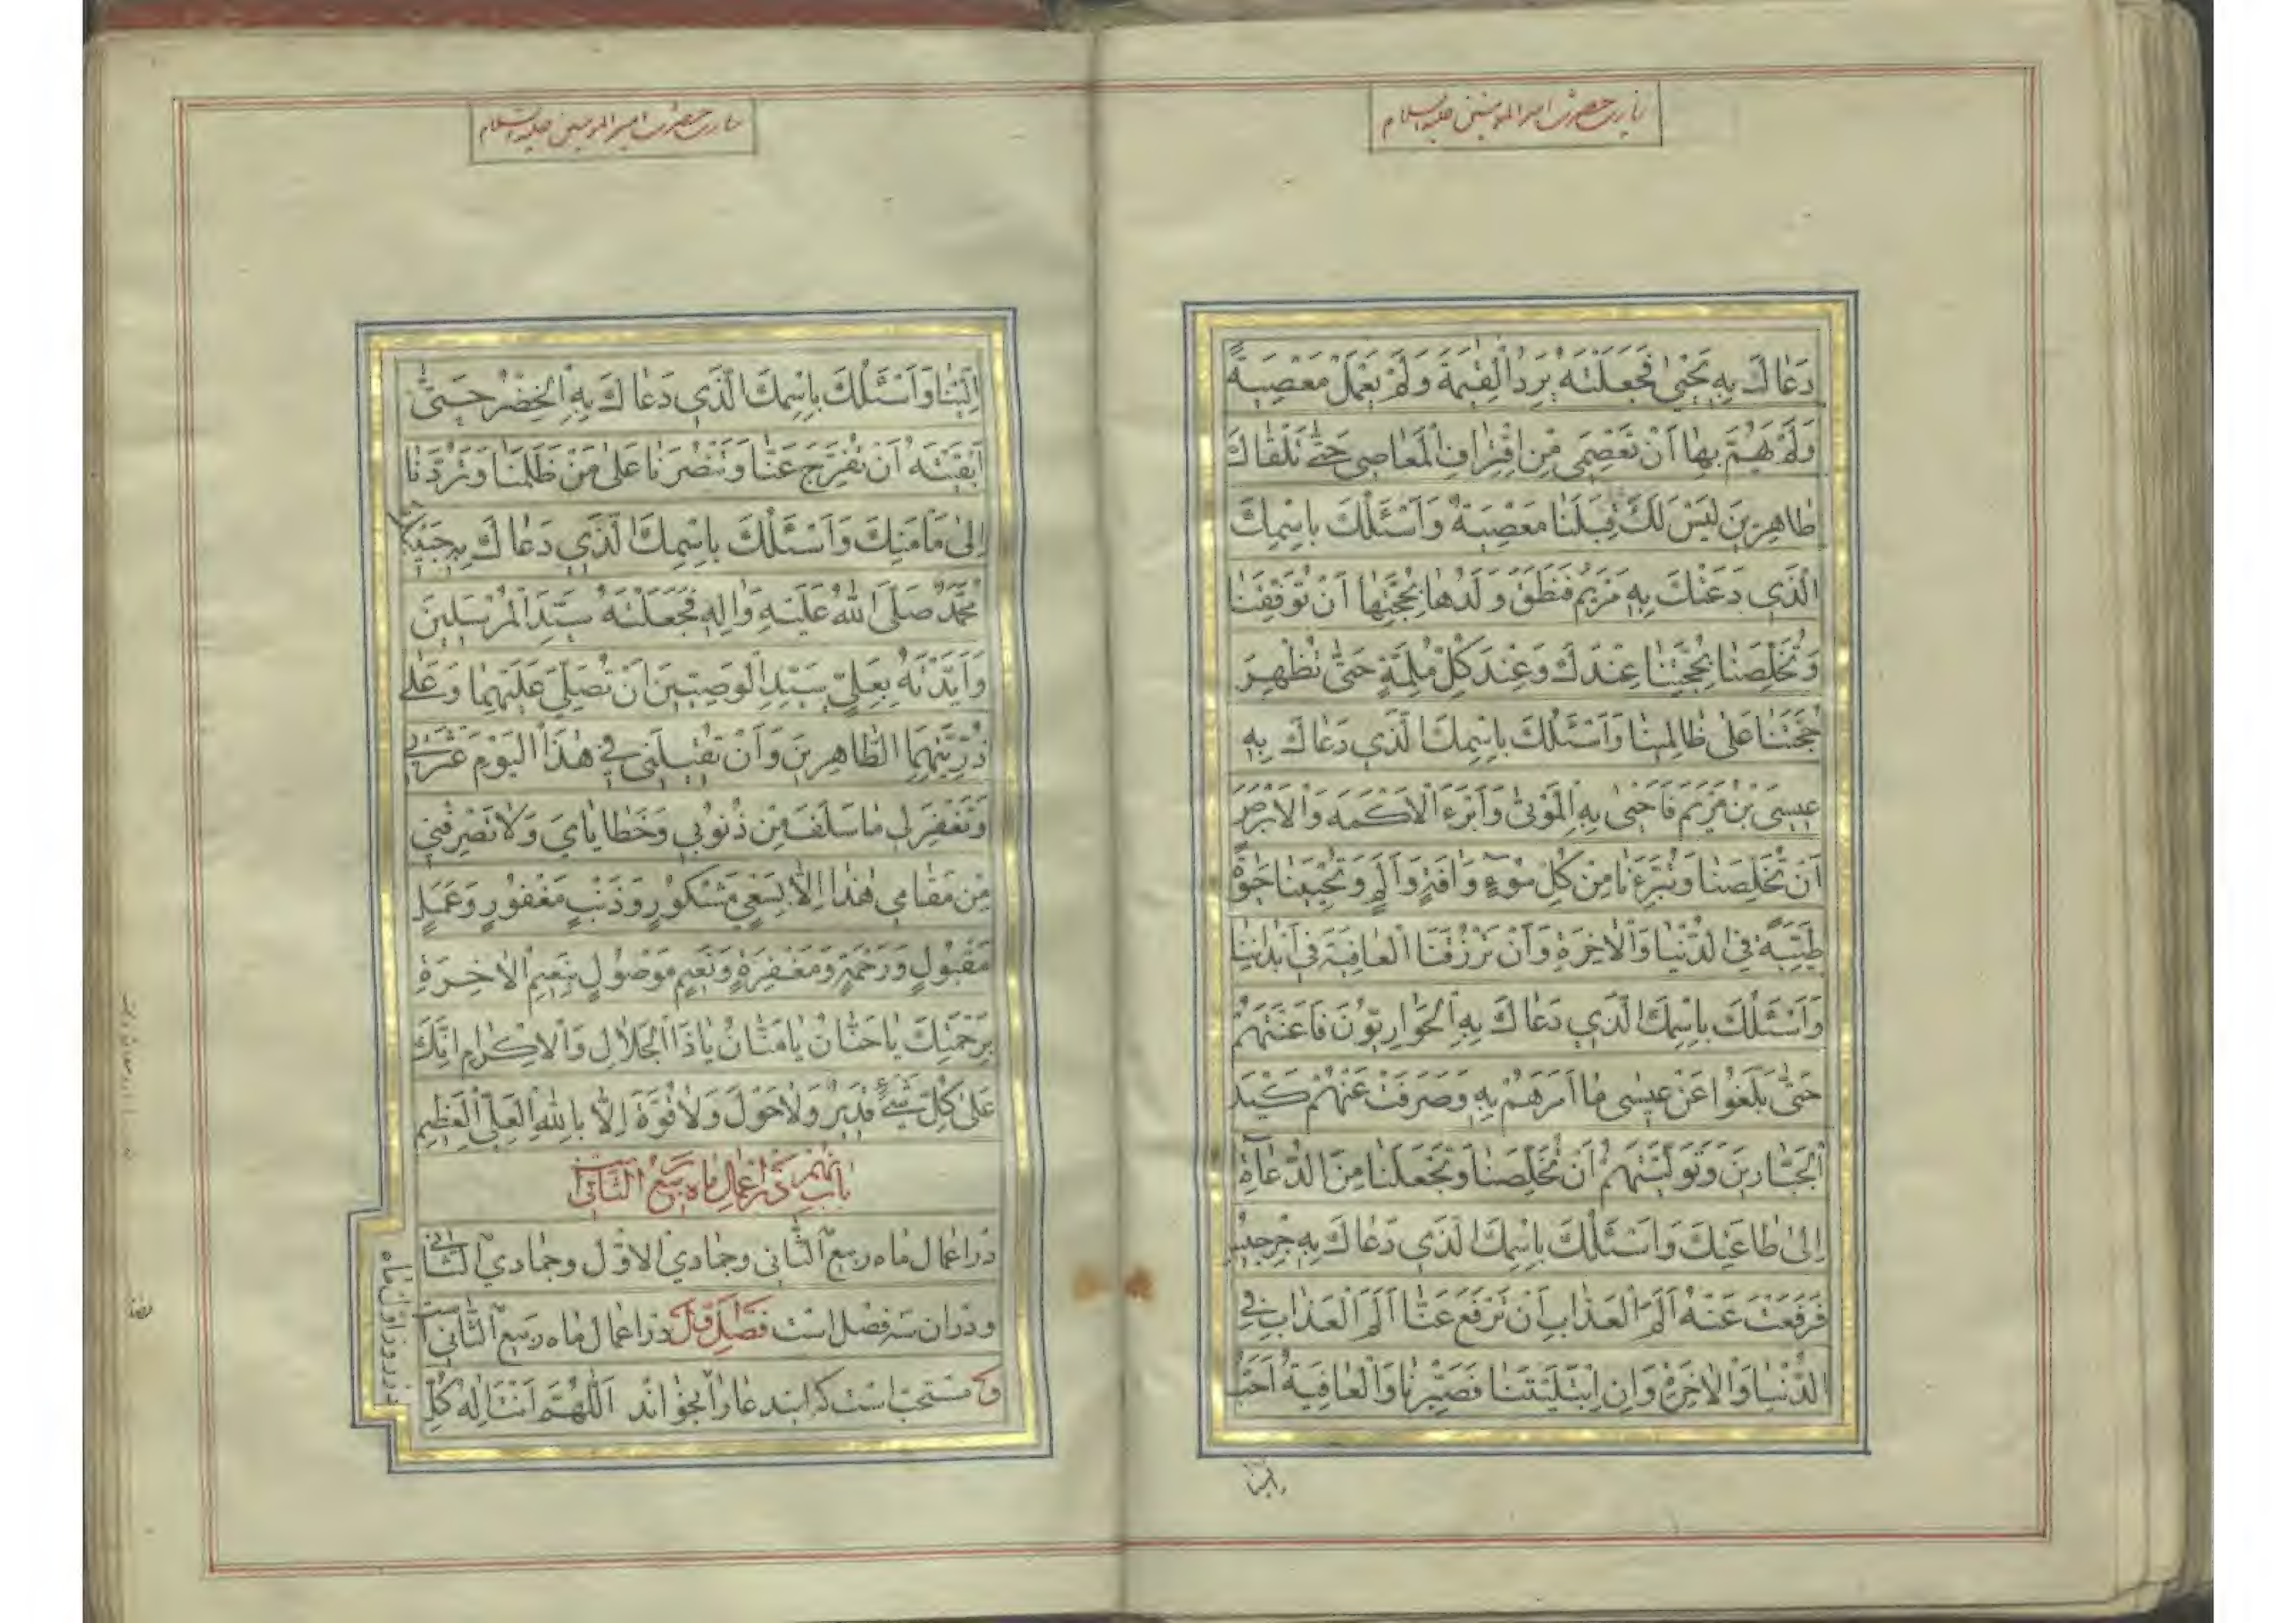 زیارت حضرت امیر المومنین علیه السلام
دَعٰاكَ بِهِ يَحْيىٰ فَجَعَلْتَهُ يَرِدُ الْقِيٰمَةَ وَلَمْ يَعْمَلْ مَعْصِيَةً
وَلَمْ يَهُمَّ بِهٰا اَنْ تَعْصِمَنى مِنْ اِقْتِرٰافِ الْمَعٰاصى حَتّٰى نَلْقٰاكَ
طٰاهِرينَ لَيْسَ لَكَ قِبَلَنٰا مَعْصِيَةٌ وَاَسْئَلُكَ بِاسْمِكَ
الَّذى دَعَتْكَ بِهِ مَرْيَمُ فَنَطَقَ وَلَدُهٰا بِحُجَّتِهٰا اَنْ تُوَفِّقَنٰا
وَتُخَلِّصَنٰا بِحُجَّتِنٰا عِنْدَكَ وَعِنْدَ كُلِّ مُلِمَّةٍ حَتّٰى تُظْهِرَ
حُجَّتَنٰا عَلىٰ ظٰالِمينٰا وَاَسْئَلُكَ بِاسْمِكَ الَّذى دَعٰاكَ بِهِ
عيسَى بْنُ مَرْيَمَ فَاَحْيىٰ بِهِ الْمَوْتىٰ وَاَبْرَءَ الْاَكْمَهَ وَالْاَبْرَصَ
اَنْ تُخَلِّصَنٰا وَتُبَرِّءَنٰا مِنْ كُلِّ سُوۤءٍ وَاٰفَةٍ وَاَلَمٍ وَتُحْيِيَنٰا حَيٰوةً
طَيِّبَةً فِى الدُّنْيٰا وَالْاٰخِرَةِ وَاَنْ تَرْزُقَنَا الْعٰافِيَةَ فى اَبْدٰانِنٰا
وَاَسْئَلُكَ بِاسْمِكَ الَّذى دَعٰاكَ بِهِ الْحَوٰارِيُّونَ فَاَعَنْتَهُمْ
حَتّٰى بَلَغُوا عَنْ عيسٰى مٰا اَمَرَهُمْ بِهِ وَصَرَفْتَ عَنْهُمْ كَيْدَ
الْجَبّٰارينَ وَتَوَلَّيْتَهُمْ اَنْ تُخَلِّصَنٰا وَتَجْعَلَنٰا مِنَ الدُّعٰاةِ
اِلىٰ طٰاعَتِكَ وَاَسْئَلُكَ بِاسْمِكَ الَّذى دَعٰاكَ بِهِ جِرْجيسُ
فَرَفَعْتَ عَنْهُ اَلَمَ الْعَذٰابِ اَنْ تَرْفَعَ عَنّٰا اَلَمَ الْعَذٰابِ فِى
الدُّنْيٰا وَالْاٰخِرَةِ وَاِنِ ابْتَلَيْتَنٰا فَصَبِّرْنٰا وَالْعٰافِيَةُ اَحَبُّ
الینا
زیارت حضرت امیر المومنین علیه السلام
اِلَيْنٰا وَاَسْئَلُكَ بِاسْمِكَ الَّذى دَعٰاكَ بِهِ الْخِضْرُ حَتّٰى
اَبْقَيْتَهُ اَنْ تُفَرِّجَ عَنّٰا وَتَنْصُرَنٰا عَلىٰ مَنْ ظَلَمَنٰا وَتَرُدَّنٰا
اِلىٰ مَاْمَنِكَ وَاَسْئَلُكَ بِاسْمِكَ الَّذى دَعٰاكَ بِهِ حَبيبُكَ
مُحَمَّدٌ صَلَّى اللهُ عَلَيْهِ وَاٰلِهِ فَجَعَلْتَهُ سَيِّدَ الْمُرْسَلينَ
وَاَيَّدْتَهُ بِعَلِىٍّ سَيِّدِ الْوَصِيّينَ اَنْ تُصَلِّىَ عَلَيْهِمٰا وَعَلىٰ
ذُرِّيَّتِهِمَا الطّٰاهِرينَ وَاَنْ تَقْبَلَنى فى هٰذَا الْيَوْمِ
وَتَغْفِرَ لى مٰا سَلَفَ مِنْ ذُنُوبى وَخَطٰايٰاىَ وَلٰا تَصْرِفْنى
مِنْ مَقٰامى هٰذٰا اِلّٰا بِسَعْىٍ مَشْكُورٍ وَذَنْبٍ مَغْفُورٍ وَعَمَلٍ
مَقْبُولٍ وَرَحْمَةٍ وَمَغْفِرَةٍ وَنَعيمٍ مَوْصُولٍ بِنَعيمِ الْاٰخِرَةِ
بِرَحْمَتِكَ يٰا حَنّٰانُ يٰا مَنّٰانُ يٰا ذَا الْجَلٰالِ وَالْاِكْرٰامِ اِنَّكَ
عَلىٰ كُلِّ شَىْءٍ قَديرٌ وَلٰا حَوْلَ وَلٰا قُوَّةَ اِلّٰا بِاللهِ الْعَلِىِّ الْعَظيمِ
باب نهم در اعمال ماه ربيع الثانى
در اعمال ماه ربيع الثانى وجمادى الاول وجمادى الثانى
ودران سه فصل است فصل اول در اعمال ماه ربيع الثانى است
مستحب است كه ايندعا را بخواند اَللّٰهُمَّ اَنْتَ اِلٰهُ كُلِّ
در روز اول ماه